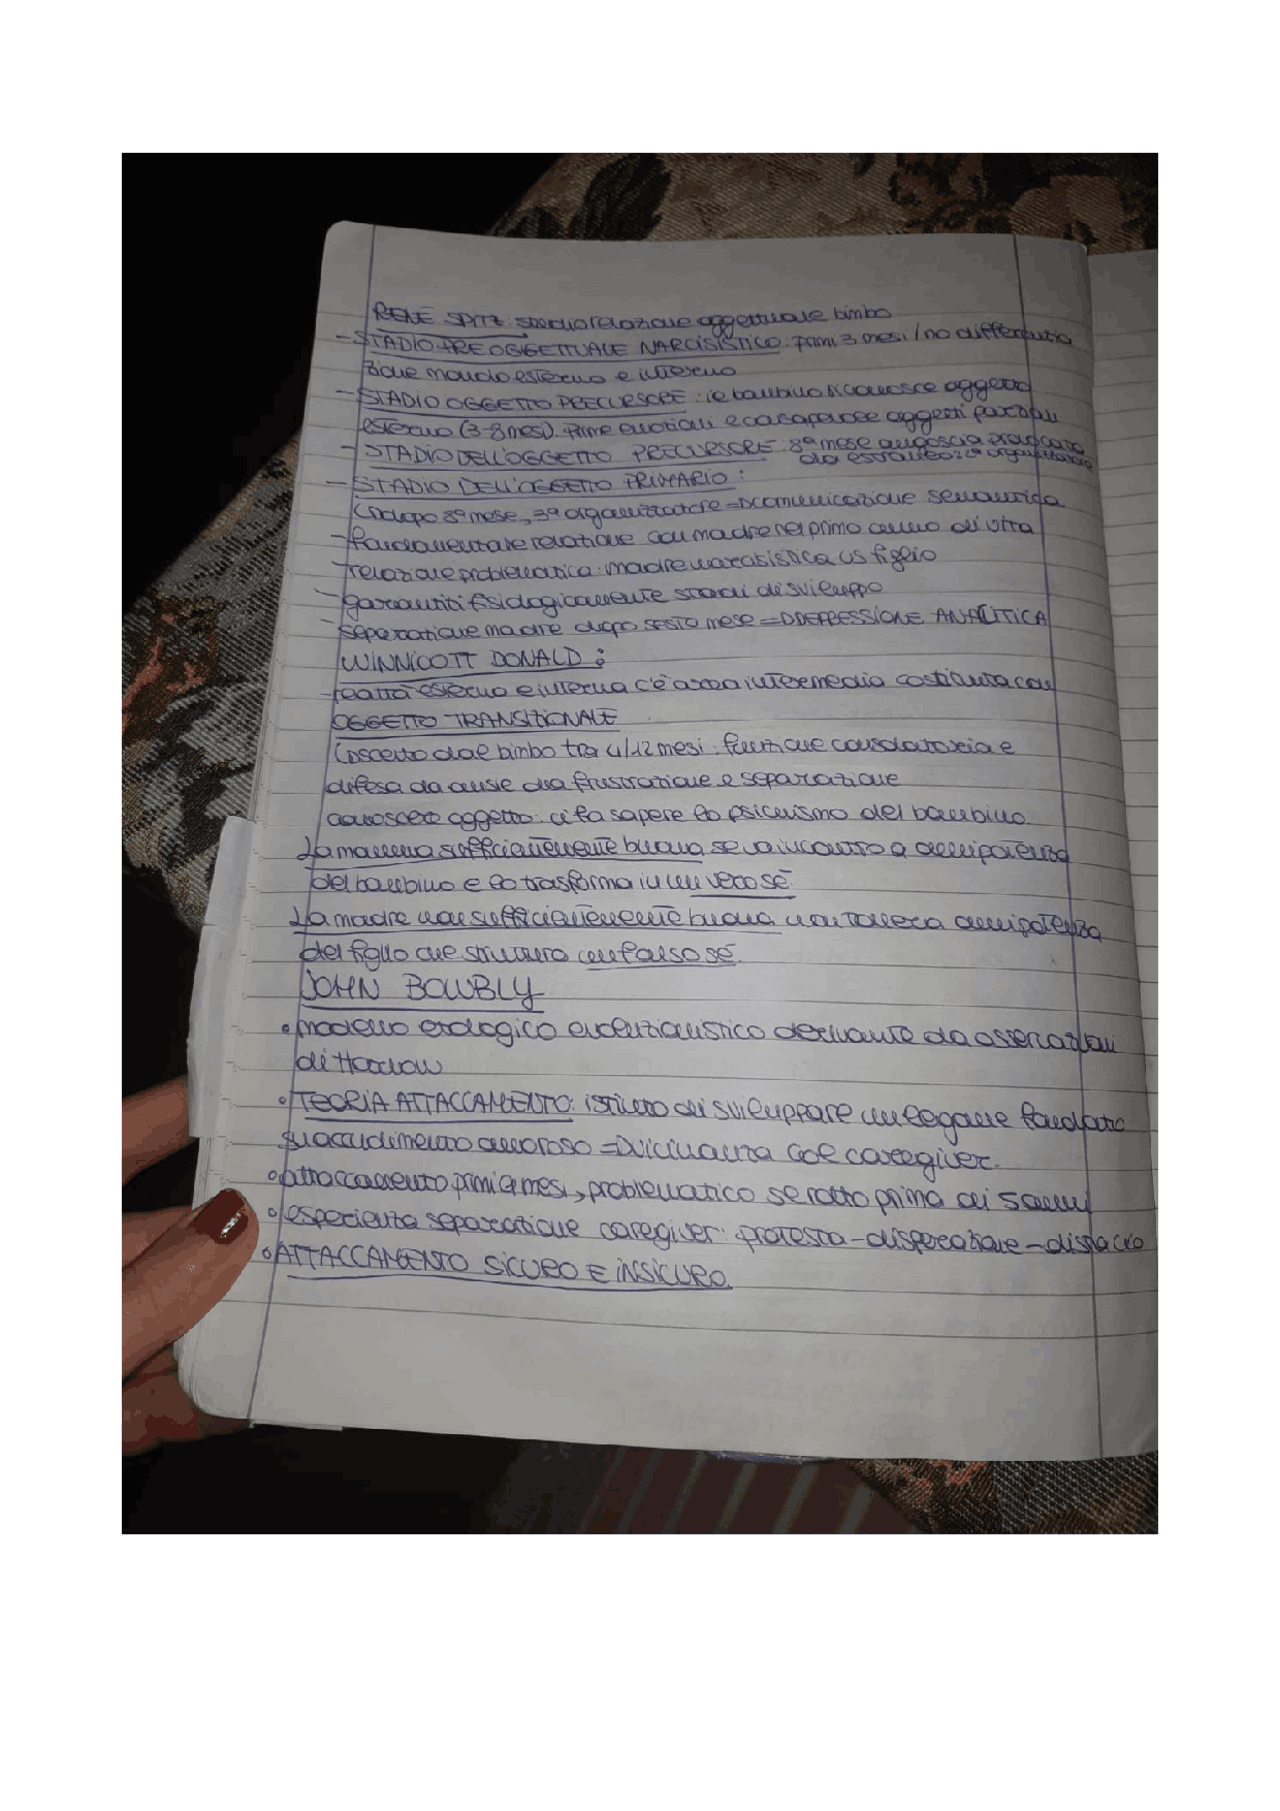 RENE SPITZ: studio relazione oggettuale bimbo
- STADIO PRE OGGETTUALE NARCISISTICO: primi 3 mesi / no differenzia
zione mondo esterno e interno
- STADIO OGGETTO PRECURSORE: il bambino riconosce oggetto
esterno (3-8 mesi). Prime emozioni e consapevole oggetti parziali
- STADIO DELL'OGGETTO PRECURSORE: 8º mese angoscia provocata
da estraneo: 2º organizzatore
- STADIO DELL'OGGETTO PRIMARIO:
dopo 8º mese, 3º organizzatore => comunicazione semantica
- fondamentale relazione con madre nel primo anno di vita
relazione problematica: madre narcisistica vs figlio
- garantiti fisiologicamente stadi di sviluppo
- separazione madre dopo sesto mese => DEPRESSIONE ANALITICA
WINNICOTT DONALD:
- realtà esterna e interna c'è area intermedia costituita con
OGGETTO TRANSIZIONALE
scelto dal bimbo tra 4/12 mesi: funzione consolatoria e
difesa da ansie da frustrazione e separazione
conoscere oggetto: ci fa sapere lo psichismo del bambino
La mamma sufficientemente buona se va incontro a onnipotenza
del bambino e lo trasforma in un vero sé.
La madre non sufficientemente buona non tollera onnipotenza
del figlio che struttura un falso sé.
JOHN BOWBLY
• modello etologico evoluzionistico derivante da osservazioni
di Harlow
• TEORIA ATTACCAMENTO: istinto di sviluppare un legame fondato
su accudimento amoroso => vicinanza col caregiver.
• attaccamento primi mesi, problematico se rotto prima di 5 anni
• esperienza separazione caregiver: protesta - disperazione - distacco
• ATTACCAMENTO SICURO E INSICURO.